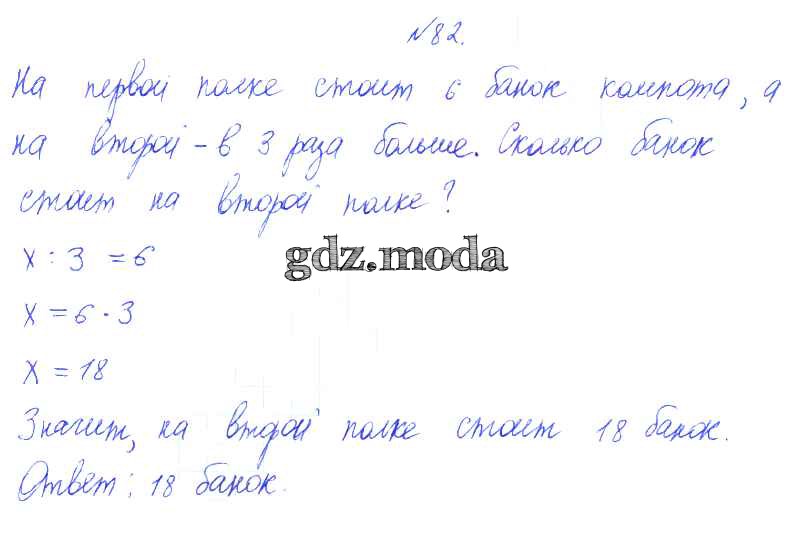 №82.
На первой полке стоит 6 банок компота, а
на второй - в 3 раза больше. Сколько банок
стоит на второй полке?
x : 3 = 6
gdz.moda
x = 6 · 3
x = 18
Значит, на второй полке стоит 18 банок.
Ответ: 18 банок.